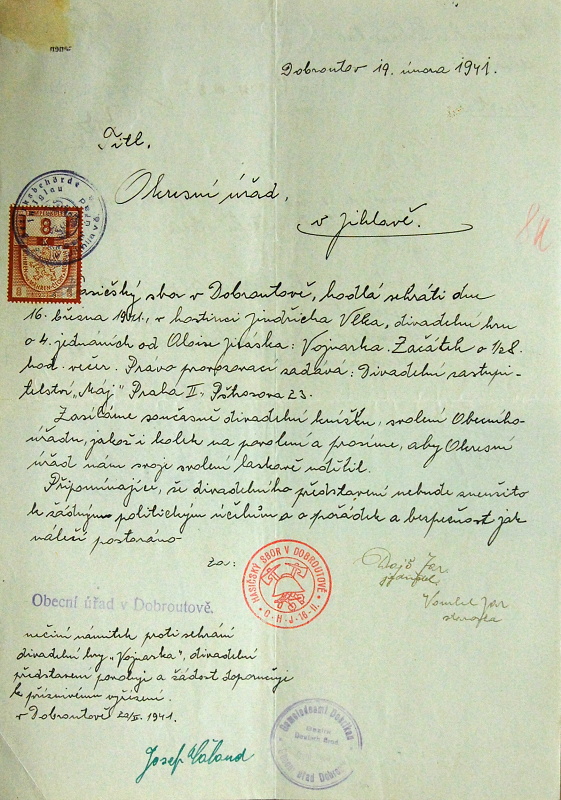 Dobroutov 19. února 1941.
Titl.
Okresní úřad,
v Jihlavě.
8 K
Hasičský sbor v Dobroutově, hodlá sehráti dne
16. března 1941., v hostinci Jindřicha Vlka, divadelní hru
o 4. jednáních od Aloise Jiráska: Vojnarka. Začátek o 1/2 8.
hod. večer. Právo provozovací zadává: Divadelní zastupi-
telství „Máj" Praha II., Pštrosova 23.
Zasíláme současně divadelní knížku, svolení Obecního
úřadu, jakož i kolek na povolení a prosíme, aby Okresní
úřad nám svoje svolení laskavě udělil.
Připomínajíce, že divadelního představení nebude zneužito
k žádným politickým účelům a o pořádek a bezpečnost jak
náleží postaráno
za:
HASIČSKÝ SBOR V DOBROUTOVĚ
O-H-J-16-II.
Obecní úřad v Dobroutově.
nečiní námitek proti sehrání
divadelní hry „Vojnarka", divadelní
představení povoluje a žádost doporučuje
k příznivému vyřízení.
v Dobroutově 20/II. 1941.
Josef
Gemeindeamt
Deutsch Brod